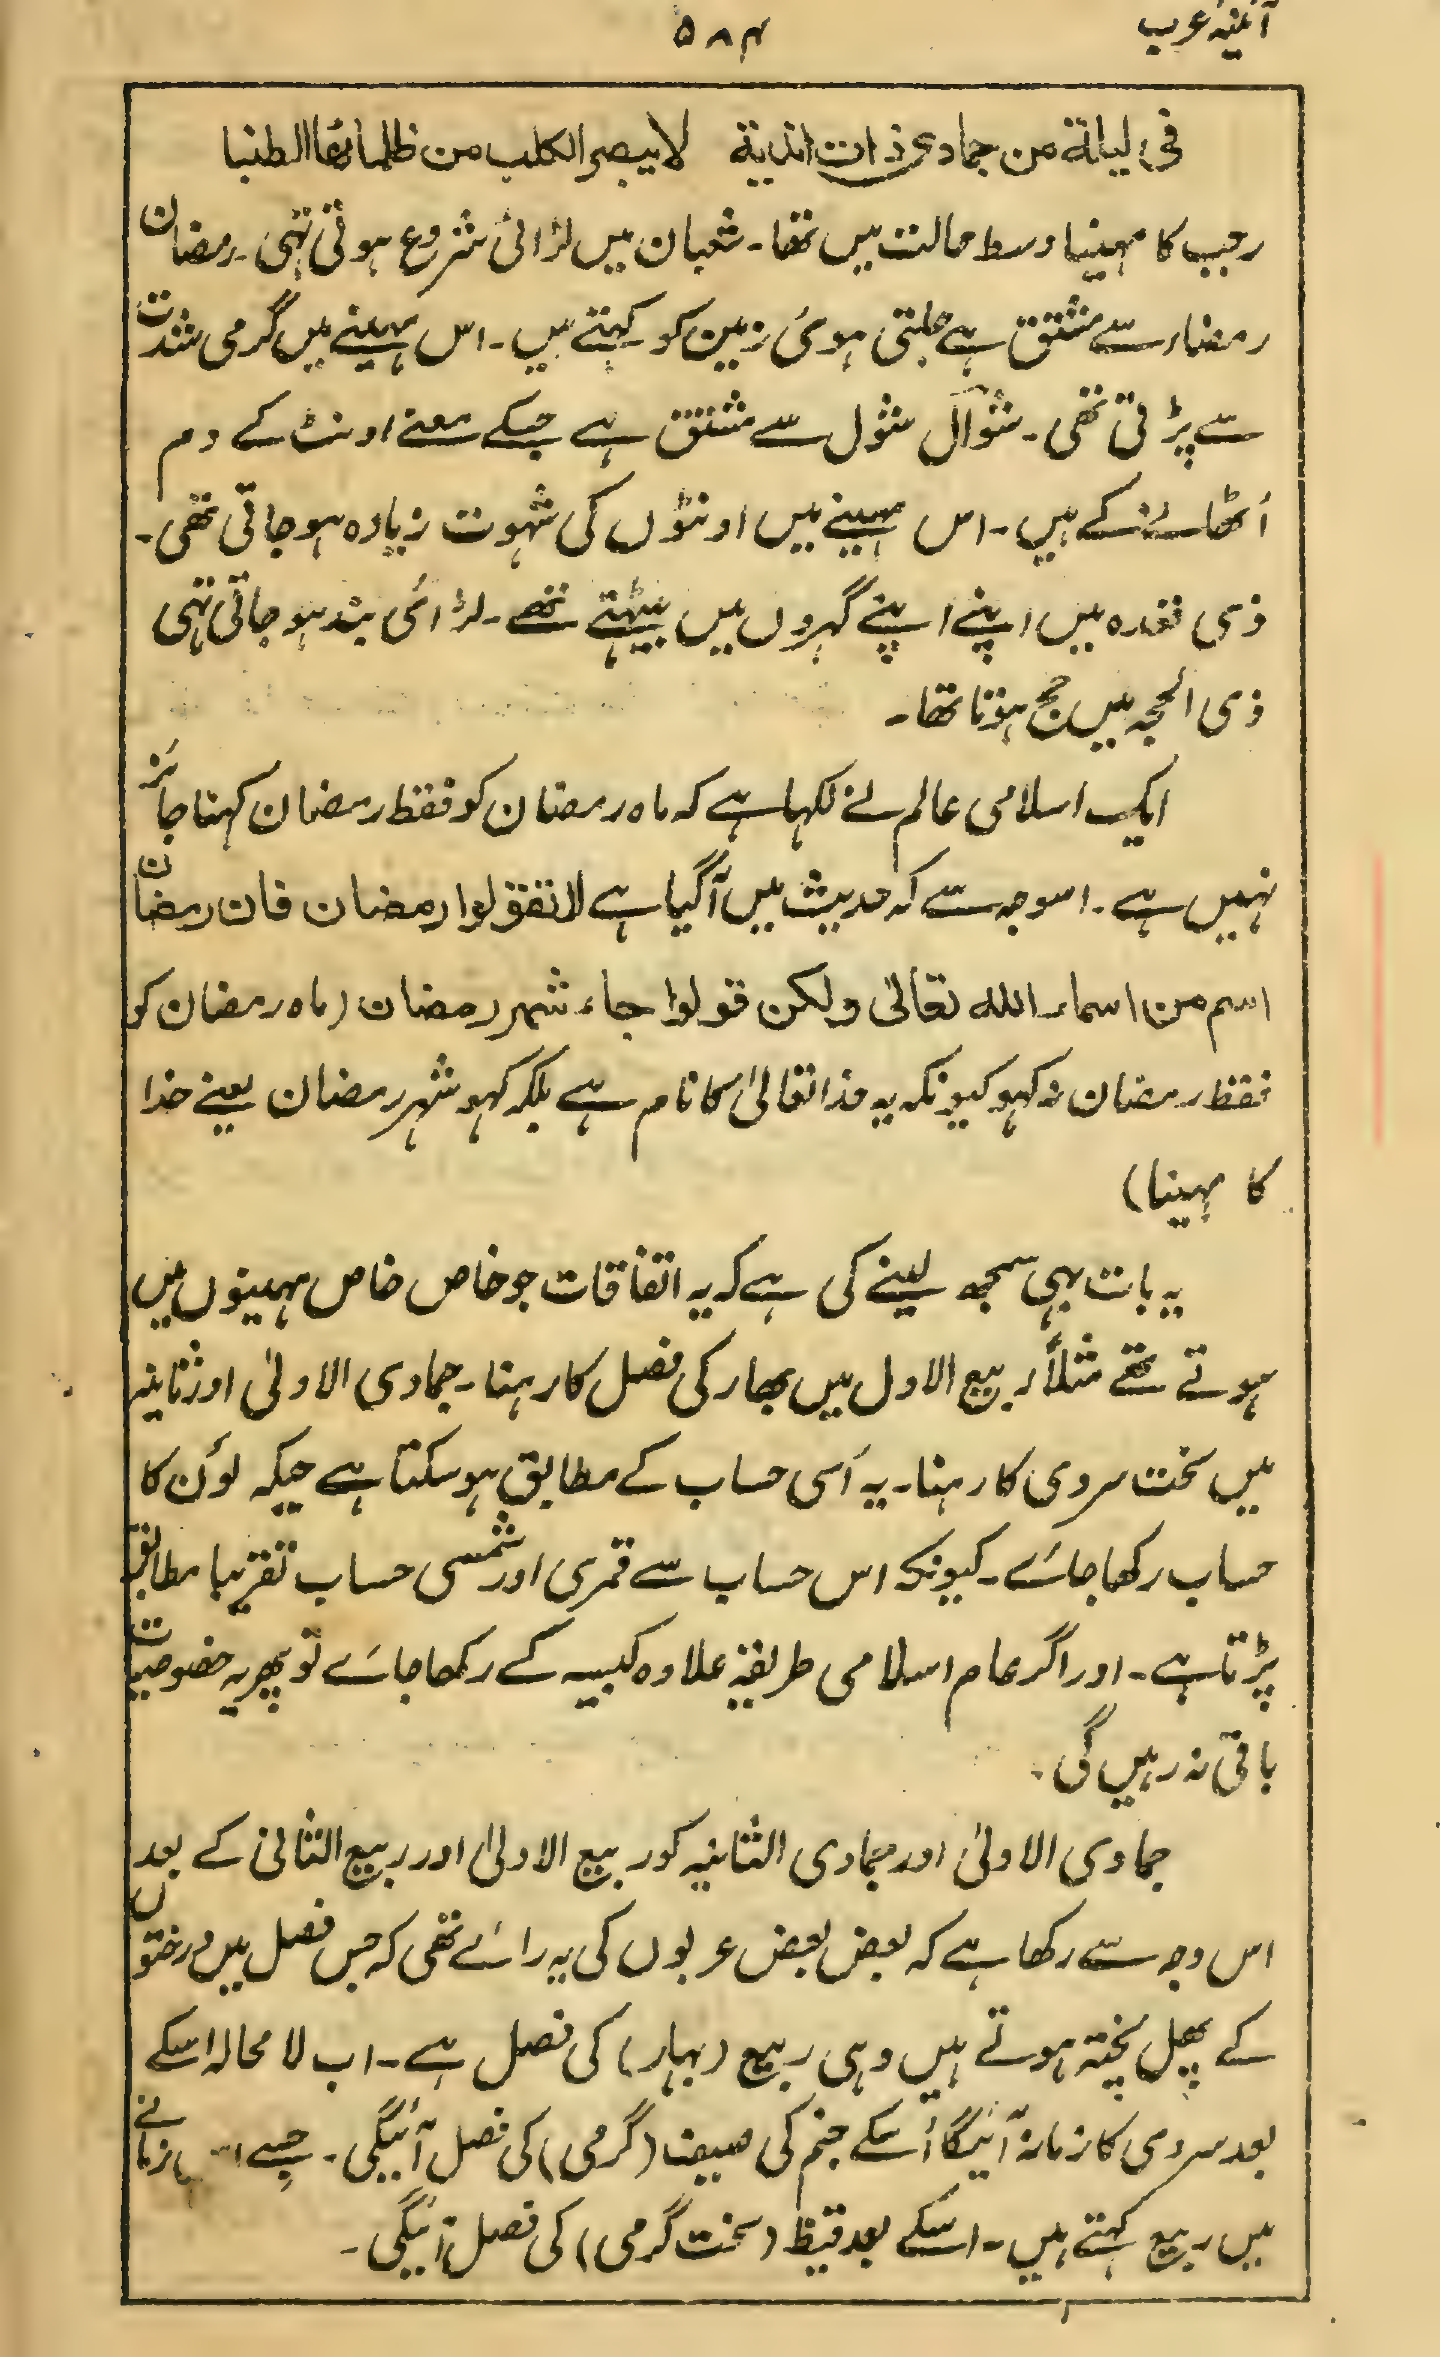 آئینۂ عرب
۵۸۴
فی لیلة من جمادی ذات اندیة لا یبصر الکلب من ظلمائها الطنبا
رجب کا مہینا وسط حالت میں تھا۔ شعبان میں لڑائی شروع ہوتی تہی۔ رمضان
رمضاء سے مشتق ہے جلتی ہوئی زمین کو کہتے ہیں۔ اس مہینے میں گرمی شدت
سے پڑتی تھی۔ شوّال شول سے مشتق ہے جسکے معنے اونٹ کے دم
اُٹھانے کے ہیں۔ اس مہینے میں اونٹوں کی شہوت زیادہ ہوجاتی تھی۔
ذی قعدہ میں اپنے اپنے گہروں میں بیٹہتے تھے۔ لڑائی بند ہو جاتی تہی
ذی الحجہ میں حج ہوتا تھا۔
ایک اسلامی عالم نے لکہا ہے کہ ماہ رمضان کو فقط رمضان کہنا جائز
نہیں ہے۔ اسوجہ سے کہ حدیث میں آگیا ہے لا تقولوا رمضان فان رمضان
اسم من اسماء اللہ تعالیٰ ولکن قولوا جاء شہر رمضان (ماہ رمضان کو
فقط رمضان نہ کہو کیونکہ یہ خدا تعالیٰ کا نام ہے بلکہ کہو شہر رمضان یعنے خدا
کا مہینا)
یہ بات بہی سمجھ لینے کی ہے کہ یہ اتفاقات جو خاص خاص مہینوں میں
ہوتے تھے مثلاً ربیع الاول میں بھار کی فصل کا رہنا۔ جمادی الاولیٰ اور ثانیہ
میں سخت سردی کا رہنا۔ یہ اُسی حساب کے مطابق ہوسکتا ہے جبکہ لوُن کا
حساب رکھا جائے۔ کیونکہ اس حساب سے قمری اور شمسی حساب تقریبا مطابق
پڑتا ہے۔ اور اگر عام اسلامی طریقہ علاوہ کبیسہ کے رکھا جائے تو پھر یہ خصوصیات
باقی نہ رہیں گی۔
جمادی الاولیٰ اور جمادی الثانیہ کو ربیع الاولیٰ اور ربیع الثانی کے بعد
اس وجہ سے رکھا ہے کہ بعض بعض عربوں کی یہ رائے تھی کہ جس فصل میں درختوں
کے پھل پختہ ہوتے ہیں وہی ربیع (بہار) کی فصل ہے۔ اب لا محالہ اسکے
بعد سردی کا زمانہ آئیگا اُسکے ختم کی صیف (گرمی) کی فصل آئیگی۔ جسے اس زمانے
میں ربیع کہتے ہیں۔ اسکے بعد قیظ (سخت گرمی) کی فصل آئیگی۔